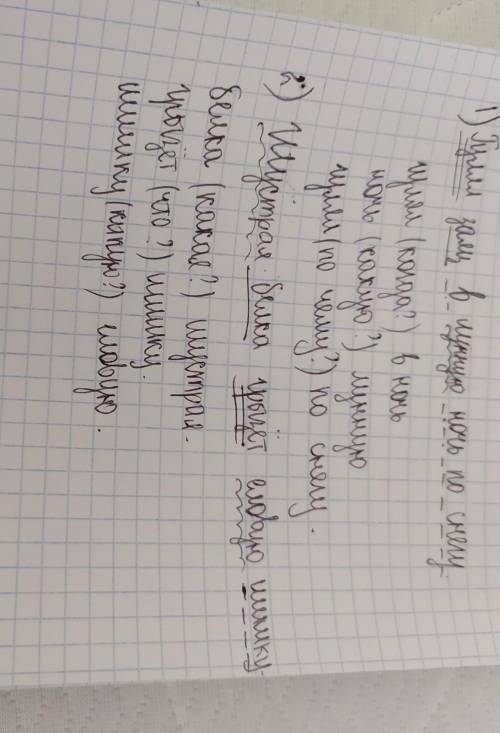 1) Гулял заяц в лунную ночь по снегу.
гулял (когда?) в ночь
ночь (какую?) лунную
гулял (по чему?) по снегу.
2) Шустрая белка грызёт еловую шишку.
белка (какая?) шустрая.
грызёт (что?) шишку.
шишку (какую?) еловую.